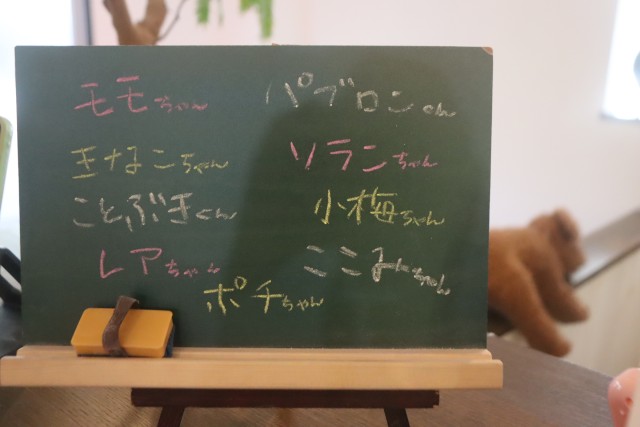 モモちゃん
パブロンくん
きなこちゃん
ソランちゃん
ことぶきくん
小梅ちゃん
レアちゃん
ここみーちゃん
ポチちゃん